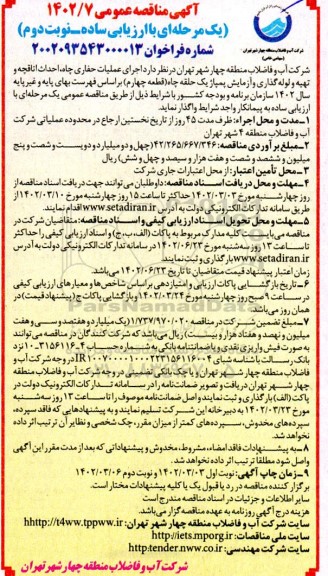 آگهی مناقصه عمومی ۱۴۰۲/۷
(یک مرحله‌ای با ارزیابی ساده_نوبت دوم)
شماره فراخوان ۲۰۰۲۰۹۳۵۴۳۰۰۰۰۱۳
شرکت آب و فاضلاب منطقه چهار شهر تهران
(سهامی خاص)
شرکت آب و فاضلاب منطقه چهار شهر تهران در نظر دارد اجرای عملیات حفاری چاه، احداث اتاقچه و
تهیه و لوله‌گذاری و آزمایش پمپاژ یک حلقه چاه (قطعه چهارم) براساس فهرست بهای پایه و غیر پایه
سال ۱۴۰۲ سازمان برنامه و بودجه کشور با شرایط ذیل از طریق مناقصه عمومی یک مرحله‌ای با
ارزیابی ساده به پیمانکار واجد شرایط واگذار نماید.
۱-مدت و محل اجراء: ظرف مدت ۴۵ روز از تاریخ نخستین ارجاع در محدوده عملیاتی شرکت
آب و فاضلاب منطقه ۴ شهر تهران
۲-مبلغ برآوردی مناقصه: ۴۲/۲۶۵/۶۶۷/۳۴۶ (چهل و دو میلیارد و دویست و شصت و پنج
میلیون و ششصد و شصت و هفت هزار و سیصد و چهل و شش) ریال
۳-محل تأمین اعتبار: از محل اعتبارات جاری شرکت
۴-مهلت و محل دریافت اسناد مناقصه: داوطلبان می‌توانند جهت دریافت اسناد مناقصه از
روز چهارشنبه مورخ ۱۴۰۲/۰۳/۰۳ حداکثر تا ساعت ۱۵ روز چهارشنبه مورخ ۱۴۰۲/۰۳/۱۰ از
طریق سامانه تدارکات الکترونیکی دولت به آدرس www.setadiran.ir اقدام نمایند.
۵-مهلت و محل تحویل اسناد ارزیابی کیفی و اسناد مناقصه: متقاضیان شرکت در
مناقصه می‌بایست کلیه مدارک مربوط به پاکات (الف، ب، ج) و اسناد ارزیابی کیفی را حداکثر
تا ساعت ۱۳ روز سه‌شنبه مورخ ۱۴۰۲/۰۳/۲۳ در سامانه تدارکات الکترونیکی دولت به آدرس
www.setadiran.ir بارگذاری و ثبت نمایند.
زمان اعتبار پیشنهاد قیمت متقاضیان تا تاریخ ۱۴۰۲/۰۶/۲۳ می‌باشد.
۶-تاریخ بازگشایی پاکات ارزیابی و امتیازدهی براساس شاخص‌ها و معیارهای ارزیابی کیفی
در ساعت ۹ صبح روز چهارشنبه مورخ ۱۴۰۲/۰۳/۲۴ و بازگشایی پاکات ج (پیشنهاد قیمت) در
همان روز می‌باشد.
۷-مبلغ تضمین شرکت در مناقصه ۱/۷۳۷/۹۷۰/۰۲۰ (یک میلیارد و هفتصد و سی و هفت
میلیون و نهصد و هفتاد هزار و بیست) ریال می‌باشد که شرکت‌کنندگان در مناقصه می‌توانند
به صورت فیش واریزی نقدی و یا ضمانتنامه بانکی به شماره حساب
بانک رسالت با شناسه شبای در وجه شرکت آب و فاضلاب منطقه
چهار شهر تهران دریافت و تصویر ضمانت‌نامه را در سامانه تدارکات الکترونیک دولت در
پاکت (الف) بارگذاری و ثبت نمایند و اصل ضمانت‌نامه موصوف را تا ساعت ۱۳ روز سه‌شنبه
مورخ ۱۴۰۲/۰۳/۲۳ به دبیرخانه این شرکت تسلیم نمایند و به پیشنهادهایی که فاقد سپرده،
سپرده‌های مخدوش، سپرده‌های کمتر از میزان مقرر، چک شخصی و نظایر آن ترتیب اثر داده
نخواهد شد.
۸-به پیشنهادات فاقد امضاء، مشروط، مخدوش و پیشنهاداتی که بعد از مدت مقرر این آگهی
واصل شود مطلقاً ترتیب اثر داده نخواهد شد.
۹-زمان چاپ آگهی: نوبت اول ۱۴۰۲/۰۳/۰۳ و نوبت دوم ۱۴۰۲/۰۳/۰۶
برگزار کننده مناقصه در رد یا قبول یک یا کلیه پیشنهادات مختار است.
سایر اطلاعات و جزئیات در اسناد مناقصه مندرج است
هزینه درج آگهی روزنامه به عهده مناقصه‌گزار می‌باشد.
سایت شرکت آب و فاضلاب منطقه چهار شهر تهران: hhttp://t4ww.tppww.ir
سایت ملی مناقصات: http://iets.mporg.ir
سایت شرکت مهندسی: http:tender.nww.co.ir
شرکت آب و فاضلاب منطقه چهار شهر تهران